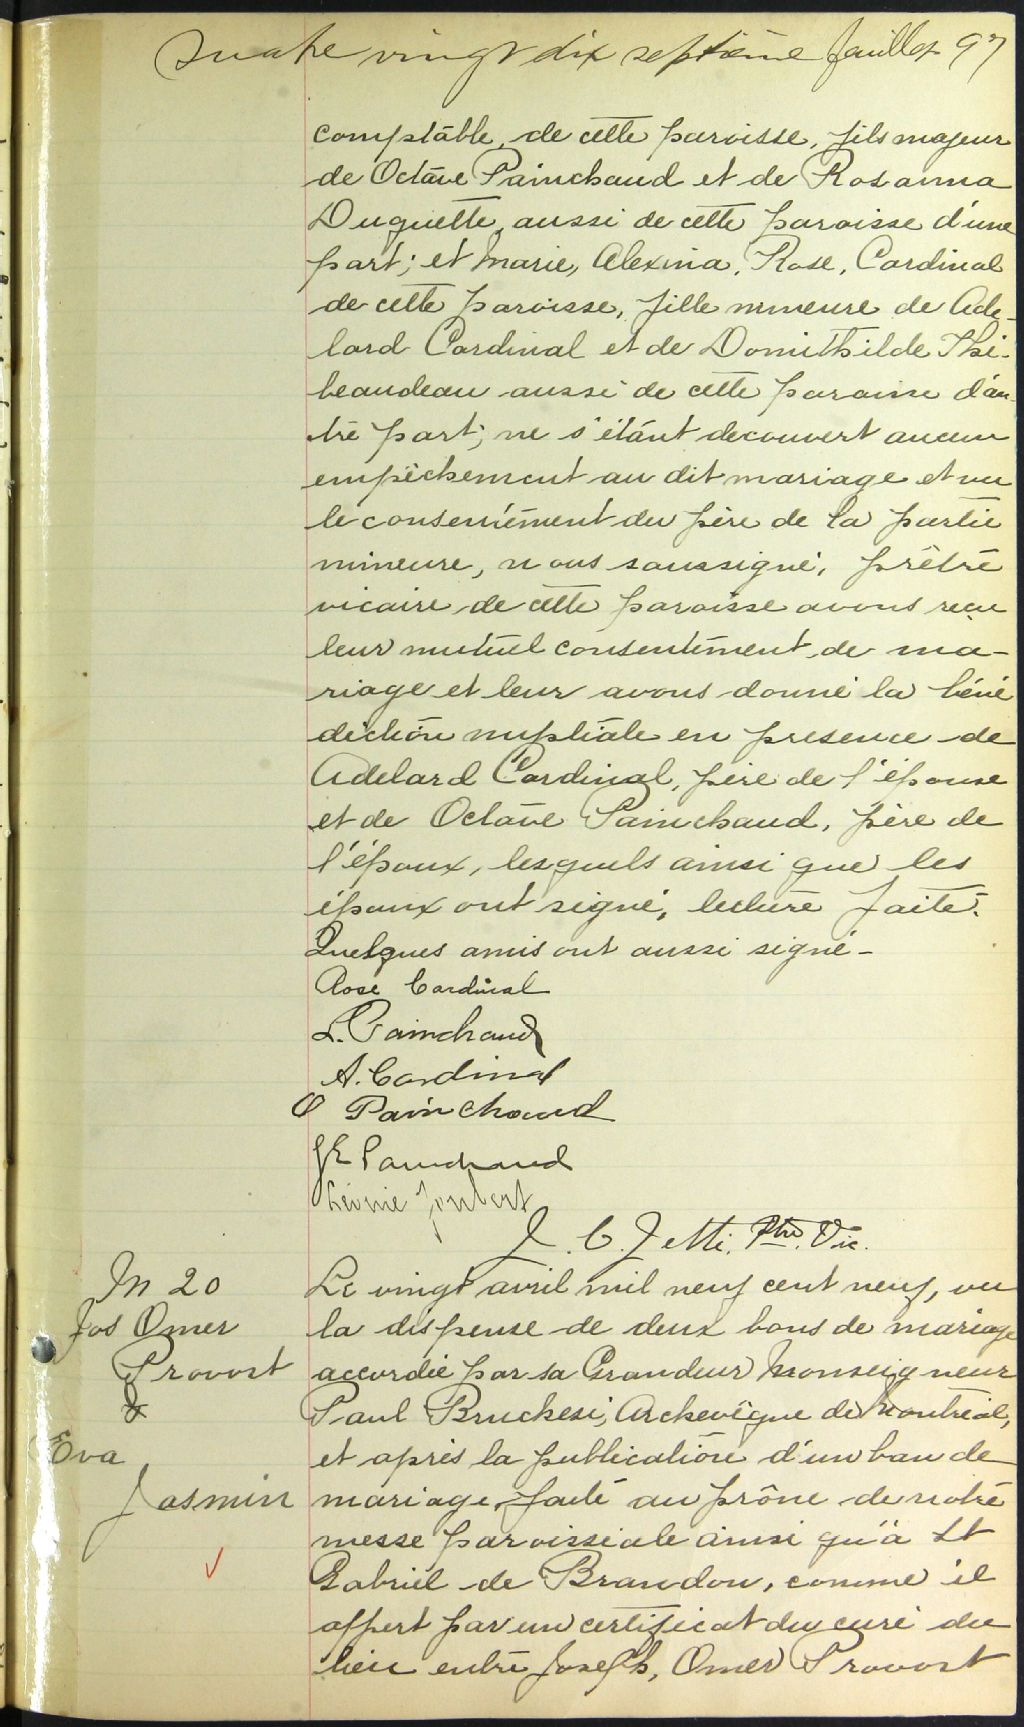 Quatre vingt dix septième feuillet 97
comptable, de cette paroisse, fils majeur
de Octave Painchaud et de Rosanna
Duquette, aussi de cette paroisse d'une
part; et Marie, Alexina, Rose, Cardinal
de cette paroisse, fille mineure de Ade-
lard Cardinal et de Domithilde Thi-
beaudeau aussi de cette paroisse d'au-
tre part; ne s'étant decouvert aucun
empêchement au dit mariage et vu
le consentement du père de la partie
mineure, nous soussigné, prêtre
vicaire de cette paroisse avons reçu
leur mutuel consentement de ma-
riage et leur avons donné la béné
diction nuptiale en presence de
Adelard Cardinal, père de l'épouse
et de Octave Painchaud, père de
l'époux, lesquels ainsi que les
époux ont signé, lecture faite.
Quelques amis ont aussi signé-
Rose Cardinal
L. Painchaud
A. Cardinal
O Painchaud
J E Painchaud
Léonie Joubert
J. C. Jetté, Ptre. Vic.
M 20
Jos Omer
Provost
&
Eva
Jasmin
Le vingt avril mil neuf cent neuf, vu
la dispense de deux bans de mariage
accordée par sa Grandeur Monseigneur
Paul Bruchesi, Archevêque de Montréal,
et après la publication d'un ban de
mariage faite au prône de notre
messe paroissiale ainsi qu'à St
Gabriel de Brandon, comme il
appert par un certificat du curé du
lieu entre Joseph, Omer Provost